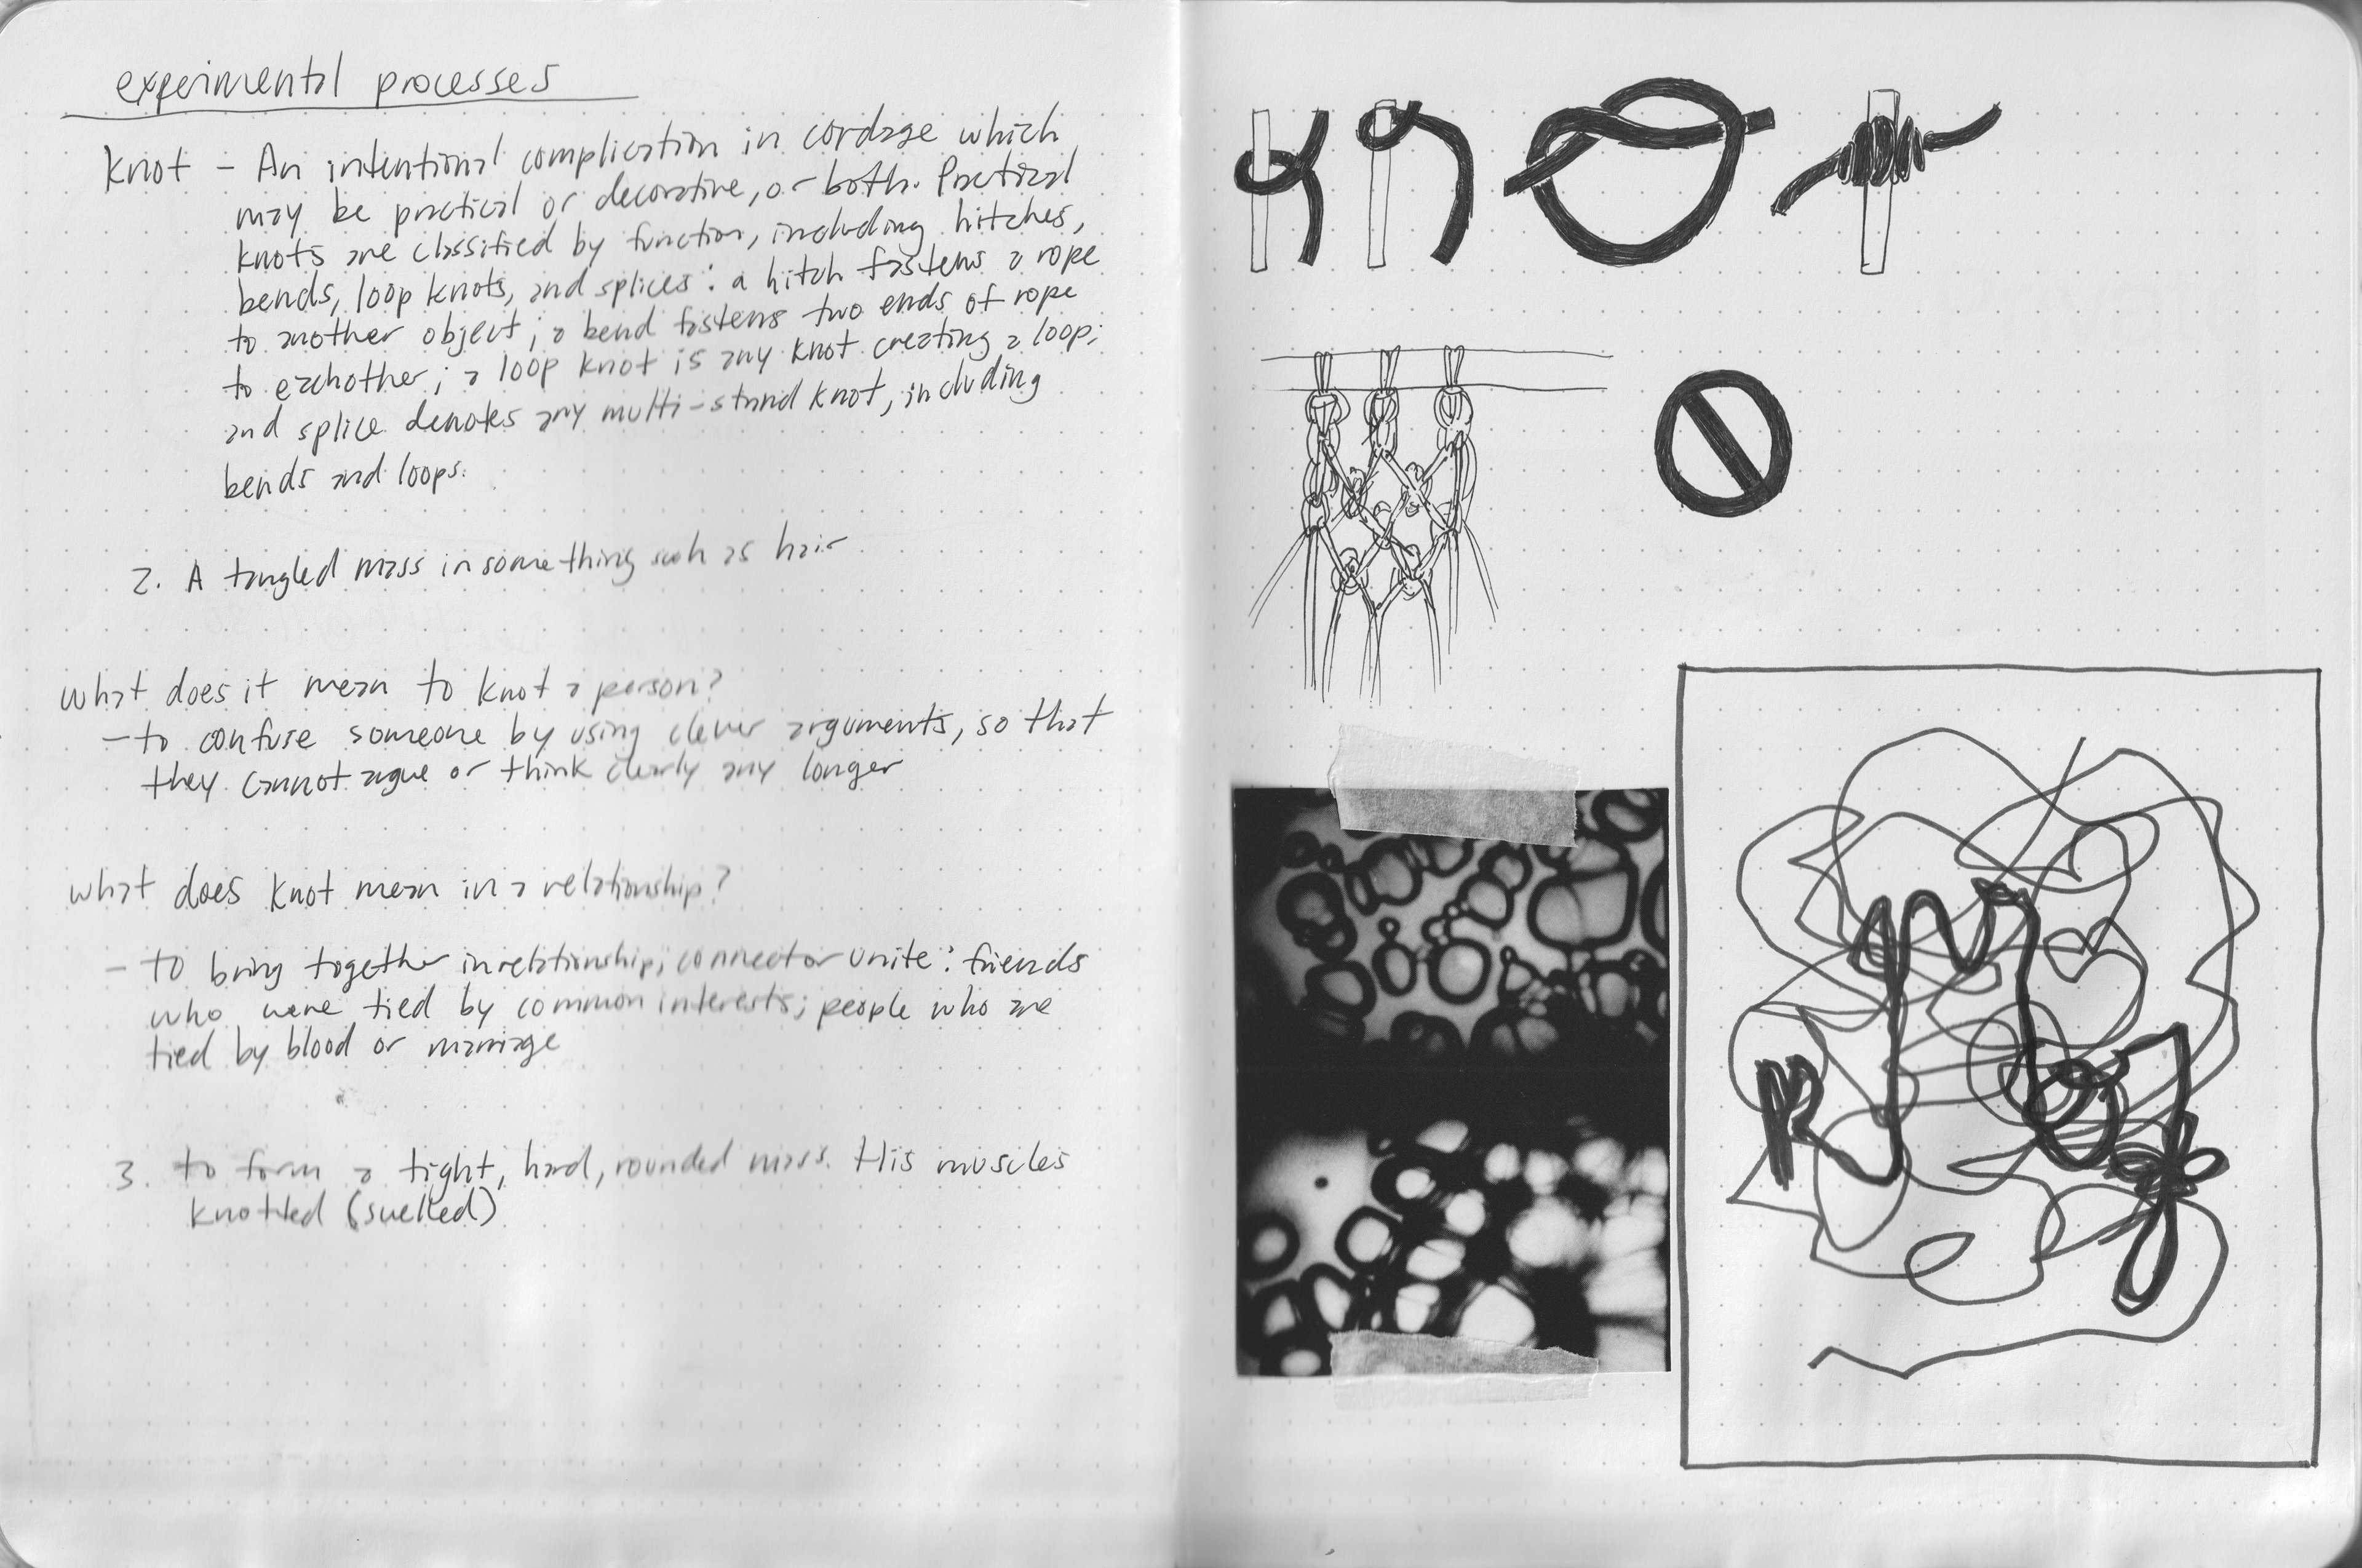 experimental processes
knot - An intentional complication in cordage which
may be practical or decorative, or both. Practical
knots are classified by function, including hitches,
bends, loop knots, and splices: a hitch fastens a rope
to another object; a bend fastens two ends of rope
to eachother; a loop knot is any knot creating a loop;
and splice denotes any multi-strand knot, including
bends and loops.
2. A tangled mass in something such as hair
what does it mean to knot a person?
- to confuse someone by using clever arguments, so that
they cannot argue or think clearly any longer
what does knot mean in a relationship?
- to bring together in relationship; connect or unite: friends
who were tied by common interests; people who are
tied by blood or marriage
3. to form a tight, hard, rounded mass. His muscles
knotted (swelled)